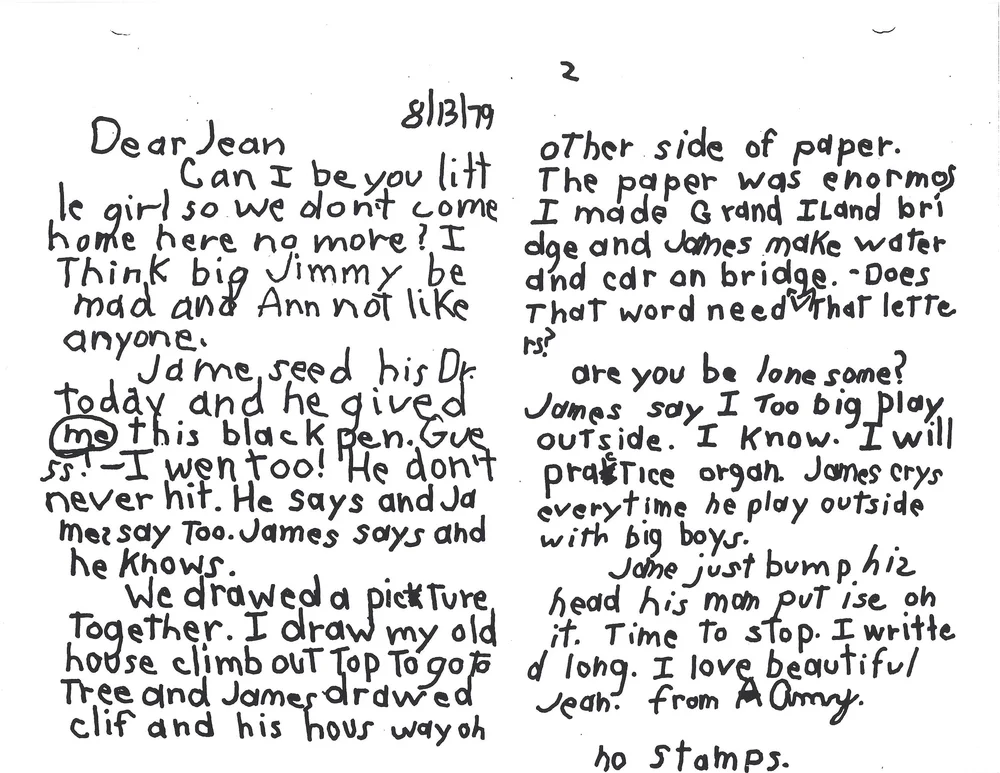 8/13/79
Dear Jean
Can I be you litt
le girl so we dont come
home here no more? I
Think big Jimmy be
mad and Ann not like
anyone.
Jame seed his Dr.
today and he gived
me this black pen. Gue
ss! - I wen too! He don't
never hit. He says and Ja
mes say Too. James says and
he knows.
We drawed a picture
Together. I draw my old
house climb ouT Top To go To
Tree and James drawed
clif and his hous way on
2
oTher side of paper.
The paper was enormos
I made Grand ILand bri
dge and James make water
and car on bridge. - Does
That word need that lette
rs?
are you be lonesome?
James say I Too big play
outside. I Know. I will
pracTice organ. James crys
everytime he play outside
with big boys.
Jame just bump his
head his mom put ise on
it. Time To stop. I writte
d long. I love beautiful
Jean. from A Amy.
no stamps.